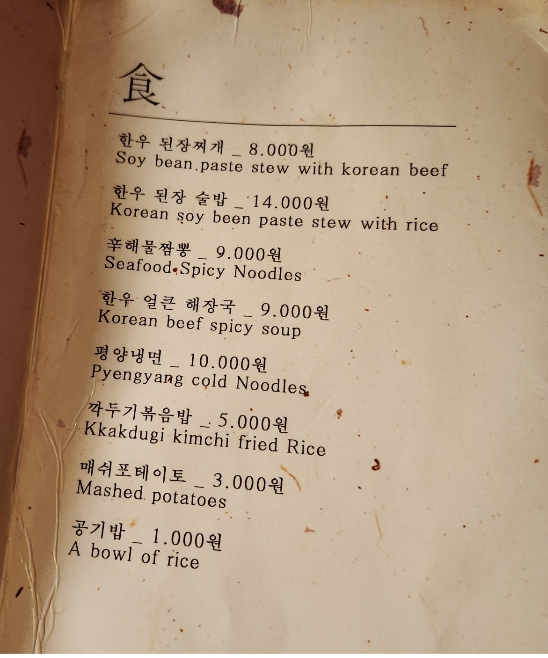 食
한우 된장찌개 _ 8.000원
Soy bean paste stew with korean beef
한우 된장 술밥 _ 14.000원
Korean soy been paste stew with rice
辛해물짬뽕 _ 9.000원
Seafood Spicy Noodles
한우 얼큰 해장국 _ 9.000원
Korean beef spicy soup
평양냉면 _ 10.000원
Pyengyang cold Noodles
깍두기볶음밥 _ 5.000원
Kkakdugi kimchi fried Rice
매쉬포테이토 _ 3.000원
Mashed potatoes
공기밥 _ 1.000원
A bowl of rice